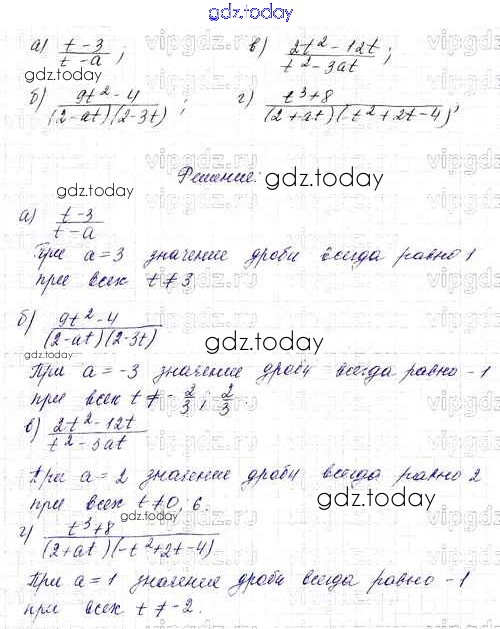 gdz.today
а) t-3/t-a ; в) 2t²-12t/t²-3at ;
gdz.today
б) 9t²-4/(2-at)(2-3t) ; г) t³+8/(2+at)(-t²+2t-4) ;
Решение: gdz.today
gdz.today
а) t-3/t-a
При a=3 значение дроби всегда равно 1
при всех t≠3
б) 9t²-4/(2-at)(2-3t) gdz.today
При a=-3 значение дроби всегда равно -1
при всех t≠-2/3; 2/3
в) 2t²-12t/t²-3at
При a=2 значение дроби всегда равно 2
при всех t≠0; 6. gdz.today
г) t³+8/(2+at)(-t²+2t-4) gdz.today
При a=1 значение дроби всегда равно -1
при всех t≠-2.